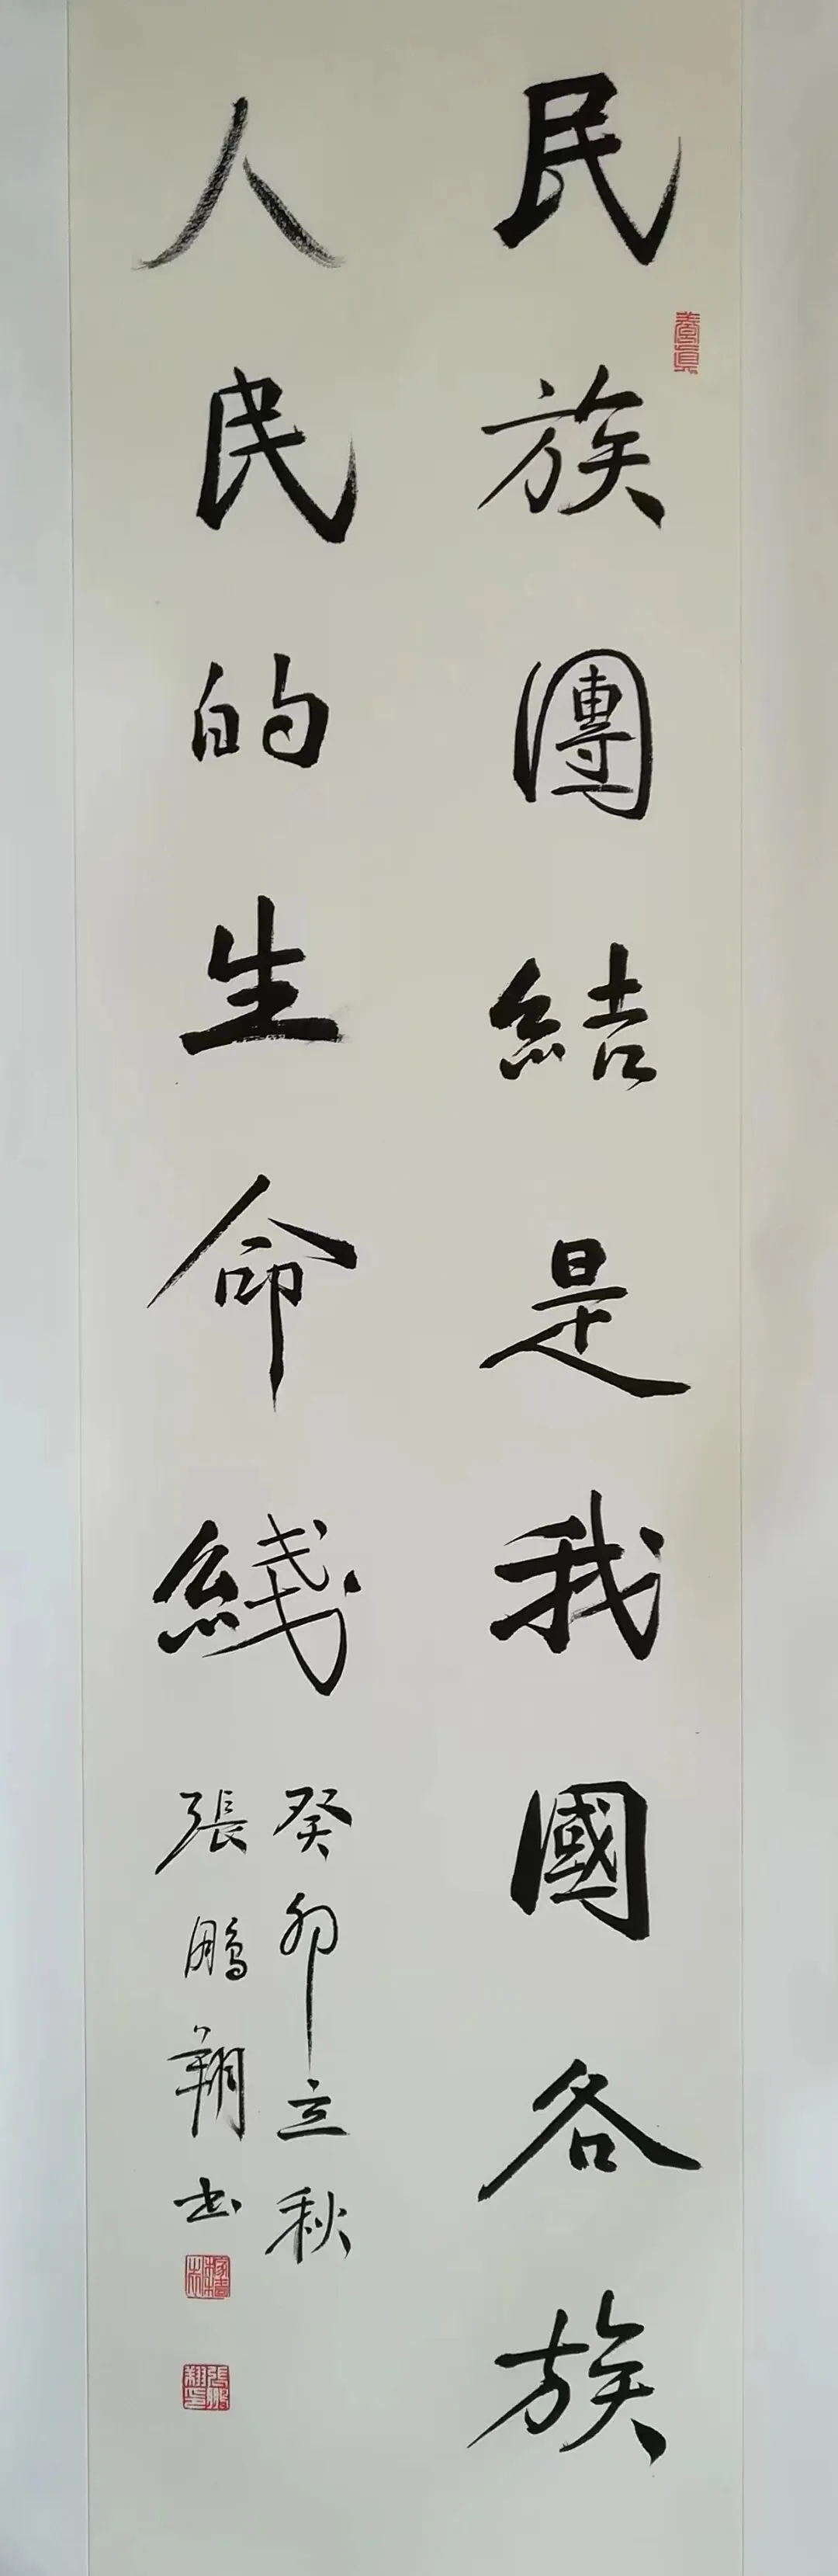 民族團結是我國各族
人民的生命綫
癸卯立秋
張鵬翔书
養真